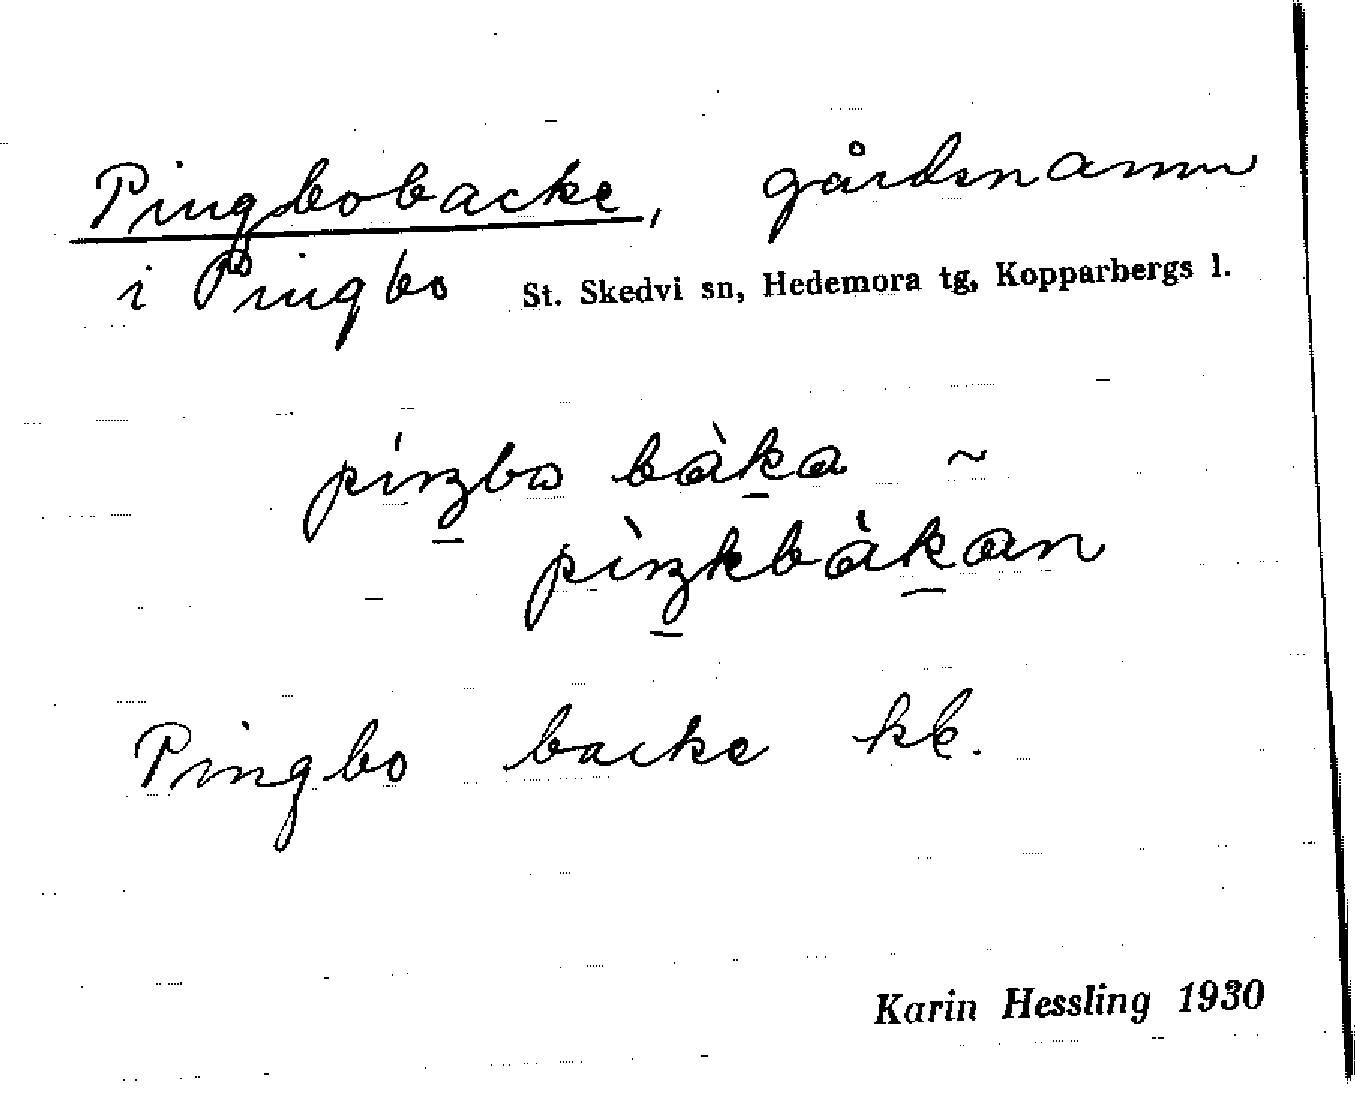 Pingbobacke, gårdsnamn
i Pingbo St. Skedvi sn, Hedemora tg, Kopparbergs l.
píŋbω bàka ~
pìŋkbàkan
Pingbo backe kk.
Karin Hessling 1930